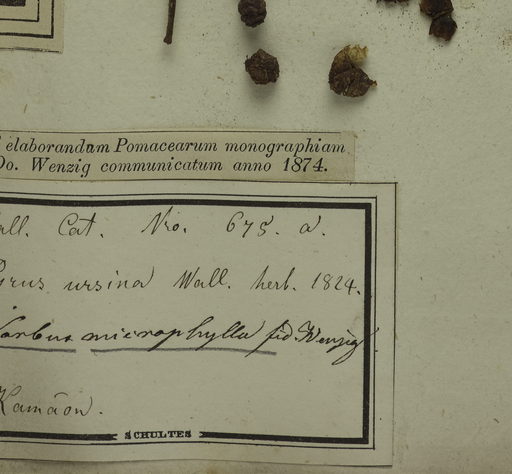 elaborandum Pomacearum monographiam
Do. Wenzig communicatum anno 1874.
all. Cat. Nro. 675. a.
yrus ursina Wall. herb. 1824.
Sorbus microphylla fid. Wenzig.
Kamāon.
SCHULTES